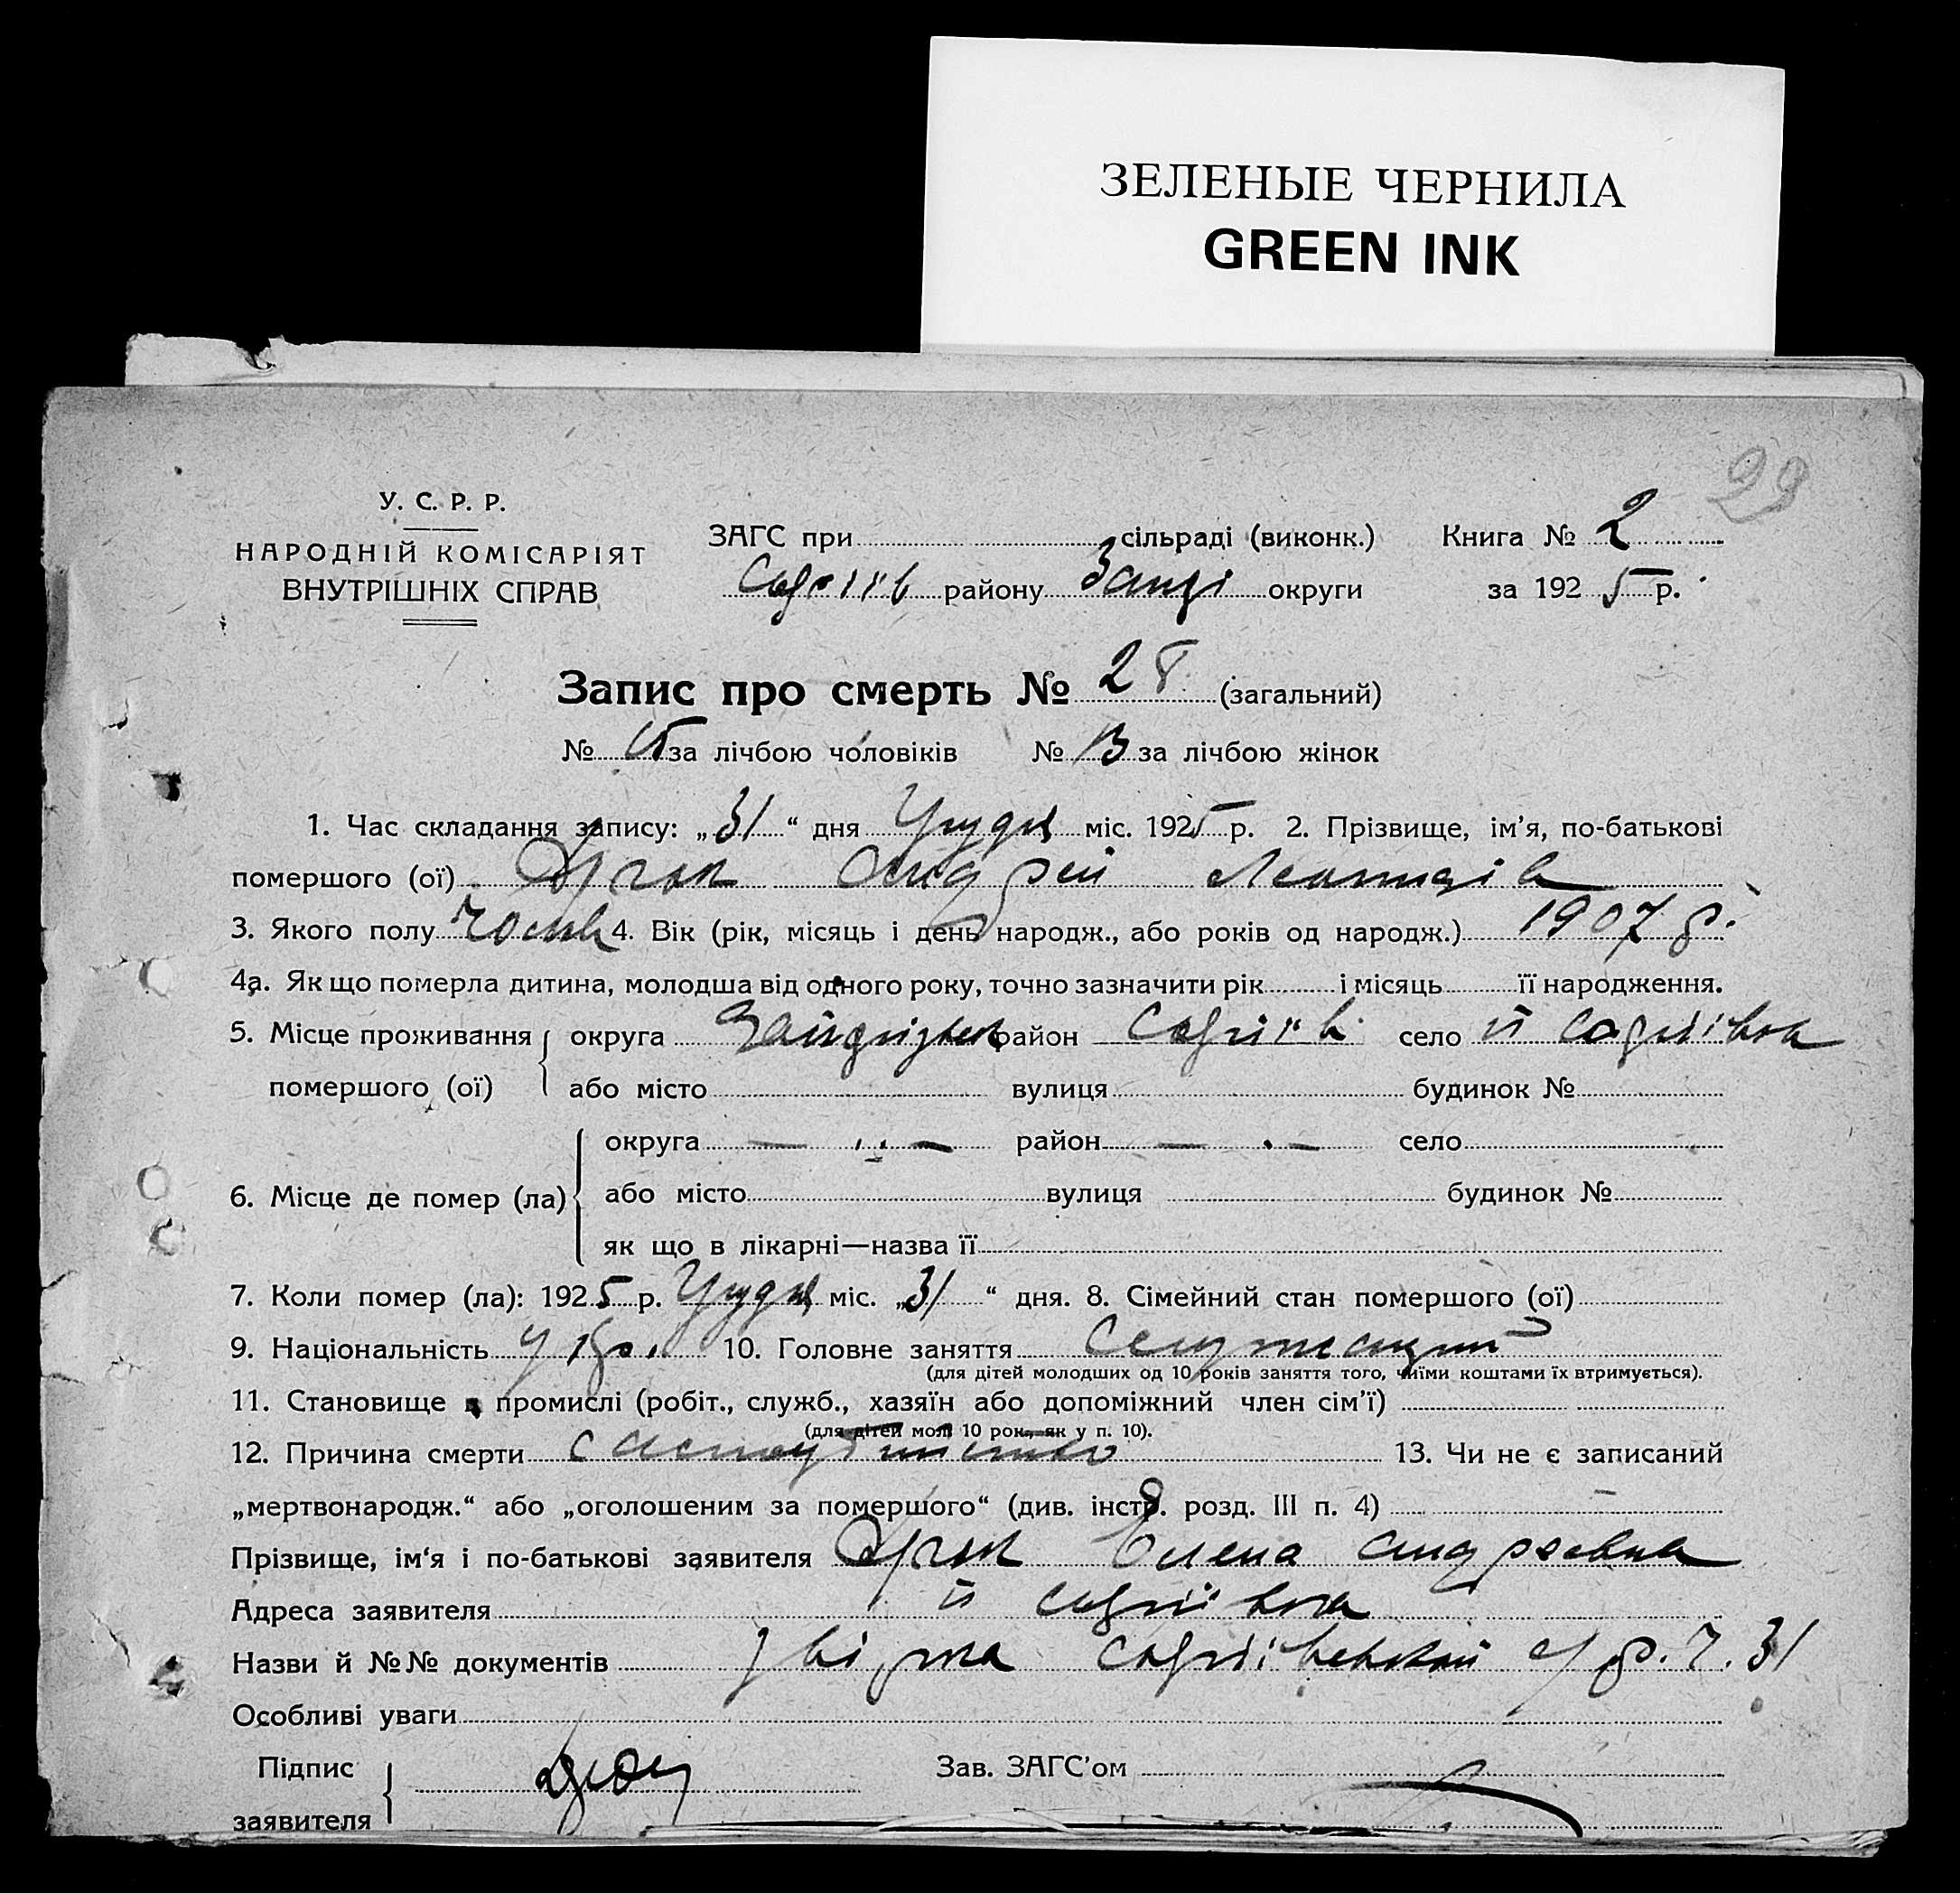 ЗЕЛЕНЫЕ ЧЕРНИЛА
GREEN INK
29
У. С. Р. Р.
НАРОДНІЙ КОМІСАРІЯТ
ВНУТРІШНІХ СПРАВ
ЗАГС при сільраді (виконк.) Книга № 2
району округи за 1925 р.
Запис про смерть № 28 (загальний)
№ 15 за лічбою чоловіків № 13 за лічбою жінок
1. Час складання запису: „31“ дня Грудня міс. 1925 р. 2. Прізвище, ім’я, по-батькові
помершого (ої) Андрей
3. Якого полу 4. Вік (рік, місяць і день народж., або років од народж.) 1907 р.
4а. Як що померла дитина, молодша від одного року, точно зазначити рік і місяць її народження.
5. Місце проживання округа район село
помершого (ої) або місто вулиця будинок №
округа район село
6. Місце де помер (ла) або місто вулиця будинок №
як що в лікарні—назва її
7. Коли помер (ла): 1925 р. Грудня міс. „31“ дня. 8. Сімейний стан помершого (ої)
9. Національність укр. 10. Головне заняття
(для дітей молодших од 10 років заняття того, чиїми коштами їх втримується).
11. Становище в промислі (робіт., служб., хазяїн або допоміжний член сім’ї)
(для дітей мол. 10 рок., як у п. 10).
12. Причина смерти 13. Чи не є записаний
„мертвонародж.“ або „оголошеним за помершого“ (див. інстр. розд. III п. 4)
Прізвище, ім‘я і по-батькові заявителя Елена Андреевна
Адреса заявителя
Назви й №№ документів 31
Особливі уваги
Підпис Зав. ЗАГС’ом
заявителя